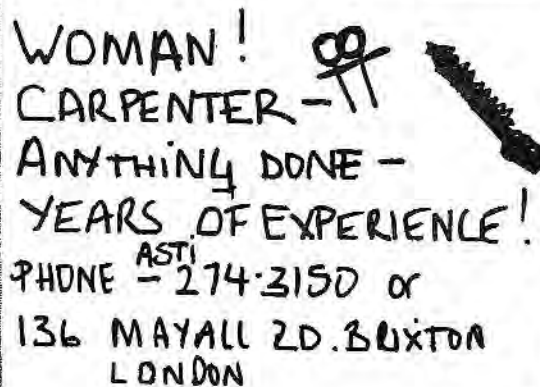 WOMAN!
CARPENTER-
ANYTHING DONE -
YEARS OF EXPERIENCE!
ASTI
PHONE - 274.3150 or
136 MAYALL RD. BRIXTON
LONDON